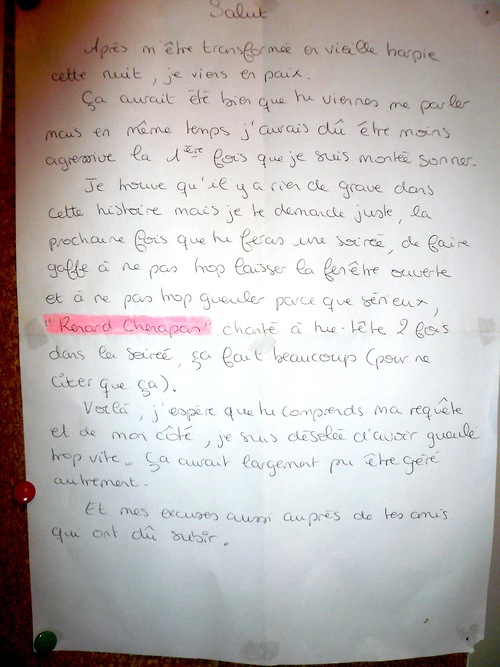 Salut
Après m'être transformée en vieille harpie
cette nuit, je viens en paix.
Ça aurait été bien que tu viennes me parler
mais en même temps j'aurais dû être moins
agressive la 1ère fois que je suis montée sonner.
Je trouve qu'il y a rien de grave dans
cette histoire mais je te demande juste, la
prochaine fois que tu feras une soirée, de faire
gaffe à ne pas trop laisser la fenêtre ouverte
et à ne pas trop gueuler parce que sérieux,
"Renard Chenapan" chanté à tue-tête 2 fois
dans la soirée, ça fait beaucoup (pour ne
citer que ça).
Voilà, j'espère que tu comprends ma requête
et de mon côté, je suis désolée d'avoir gueulé
trop vite.. Ça aurait largement pu être géré
autrement.
Et mes excuses aussi auprès de tes amis
qui ont dû subir.